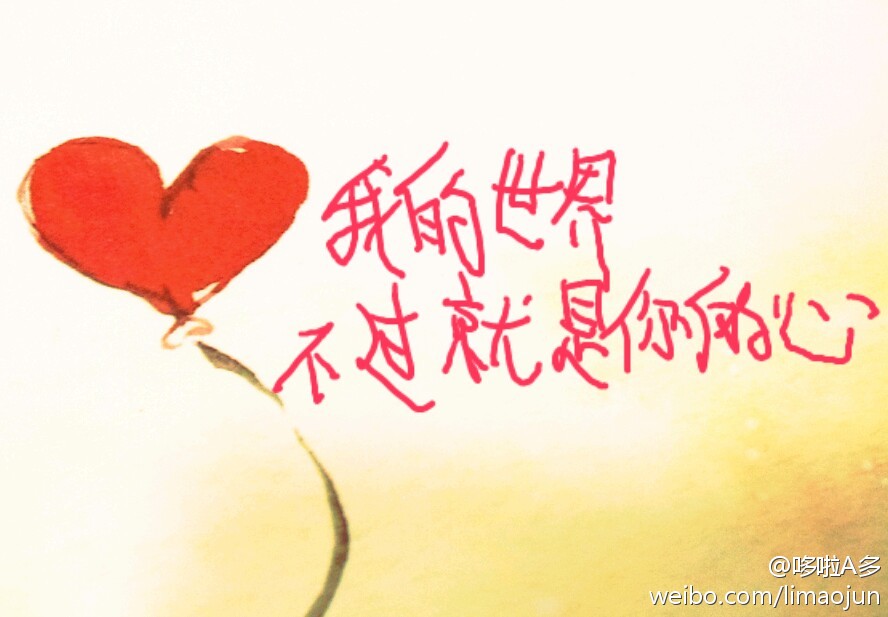 我的世界
不过就是你的心
@哆啦A多
weibo.com/limaojun